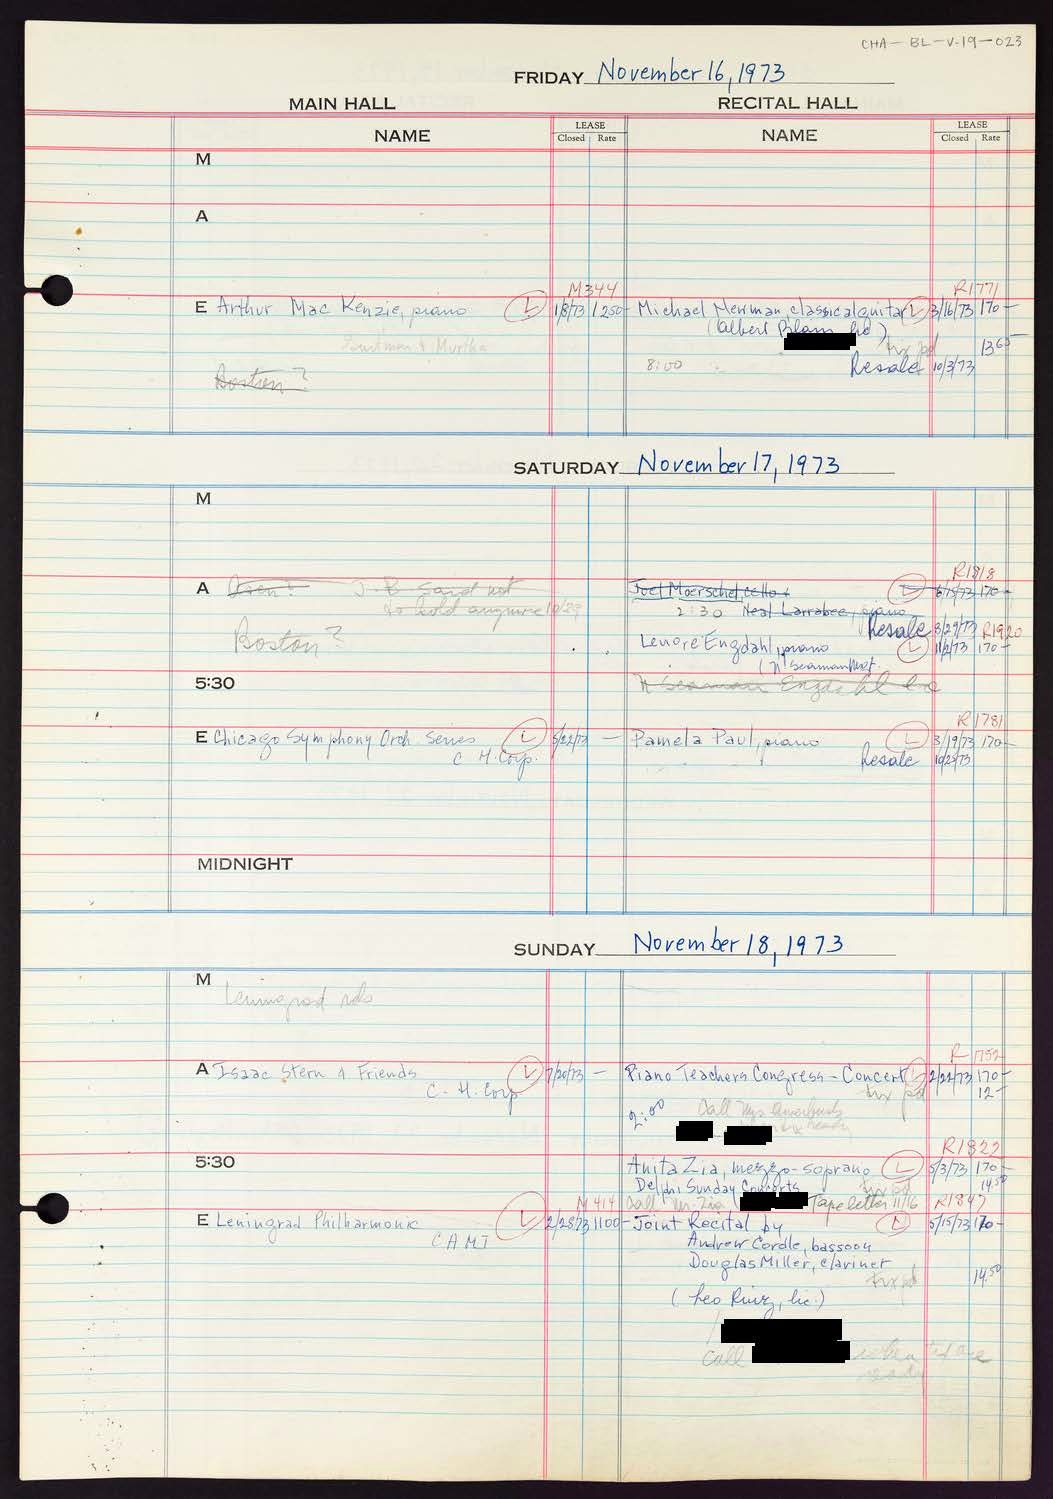 CHA-BL-V-19-023
FRIDAY November 16, 1973
MAIN HALL RECITAL HALL
NAME LEASE Closed Rate NAME LEASE Closed Rate
M
A
M344 R1771
E Arthur Mac Kenzie, piano L 1/8/73 1250- Michael Newman, classical guitar L 3/16/73 170-
(Albert
& Murtha tix pd 13 65
8:00 Resale 10/3/73
Boston?
SATURDAY November 17, 1973
M
R1818
A J.B said not Joel Moerschel, cello + L 6/15/73 170-
to hold anymore 10/29 2:30 Neal Larrabee, piano
Resale 8/29/73 R1920
Boston? Lenore Engdahl, piano L 11/2/73 170-
(N Seaman Mgt.
5:30 N Seaman Engdahl
R1781
E Chicago Symphony Orch. Series L 5/22/73 — Pamela Paul, piano L 3/19/73 170-
C H. Corp. Resale 10/23/73
MIDNIGHT
SUNDAY November 18, 1973
M
Leningrad
R1752
A Isaac Stern & Friends L 7/20/73 — Piano Teachers Congress - Concert L 2/22/73 170-
C. H. Corp tix pd 12-
2:00 Call Mrs
ready
R1822
5:30 Anita Zia, mezzo-soprano L 5/3/73 170-
Delphi Sunday Concerts tix pd 14.50
M414 Call Mr. Zia Tape letter 11/16 R1847
E Leningrad Philharmonic L 2/28/73 1100- Joint Recital by L 5/15/73 170-
CAMI Andrew Cordle, bassoon
Douglas Miller, clarinet
tix pd 14.50
(Leo Ruiz, lic.)
Call when tix are
ready